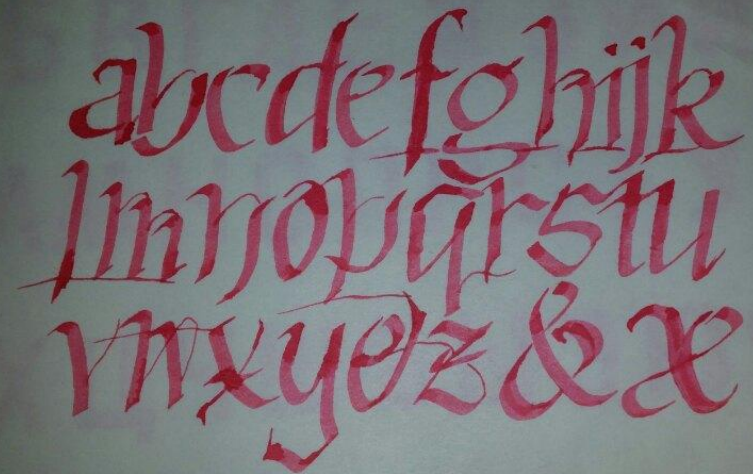 abcdefghijk
lmnopqrstu
vwxyøz&æ